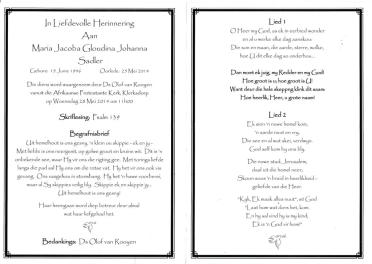 In Liefdevolle Herinnering
Aan
Maria Jacoba Gloudina Johanna
Sadler
Gebore: 15 Junie 1946 Oorlede: 23 Mei 2014
Die diens word waargeneem deur Ds Olof van Rooyen
vanuit die Afrikaanse Protestante Kerk, Klerksdorp
op Woensdag 28 Mei 2014 om 11h00
Skriflesing: Psalm 139
Begrafnisbrief
Uit hemelhout is ons gesny, 'n klein ou skippie - ek en jy -
Met liefde is ons
Hy vir ons
langs die pad sal Hy ons om die rotse vat. Hy het vir ons ook vis
gevang. Hy het 'n hawe voorberei,
waar al Sy skippies veilig bly. Skippie ek en skippie jy -
Uit hemelhout is ons gesny!
Haar heengaan word diep betreur deur almal
wat haar liefgehad het.
Bedankings: Ds Olof van Rooyen
Lied 1
O Heer my God, as ek in eerbied wonder
en al U werke elke dag aanskou:
Die son en maan, die aarde, sterre, wolke,
hoe U dit elke dag so onderhou...
Dan moet ek juig, my Redder en my God!
Hoe groot is u, hoe groot is U!
Want deur die hele skepping klink dit weer:
Hoe heerlik, Heer, u grote naam!
Lied 2
Ek sien 'n nuwe hemel kom,
'n aarde nuut en vry.
Die see en al wat skei, verdwyn:
God self kom by ons bly.
Die nuwe stad, Jerusalem,
daal uit die hemel neer,
Skoon soos 'n bruid in heerlikheid -
geliefde van die Heer.
"Kyk, Ek maak alles nuut", sê God
"Laat hom wat dors het, kom:
En hy sal vind hy is my kind,
Ek is 'n God vir hom!"